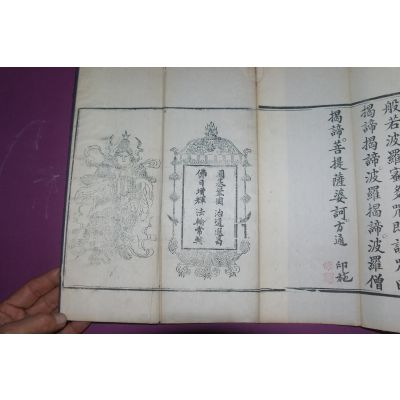 般若波羅蜜多咒即說咒曰
揭諦揭諦波羅揭諦波羅僧
揭諦菩提薩婆訶 方通 印施
皇基鞏固 治道遐昌
佛日增輝 法輪常轉